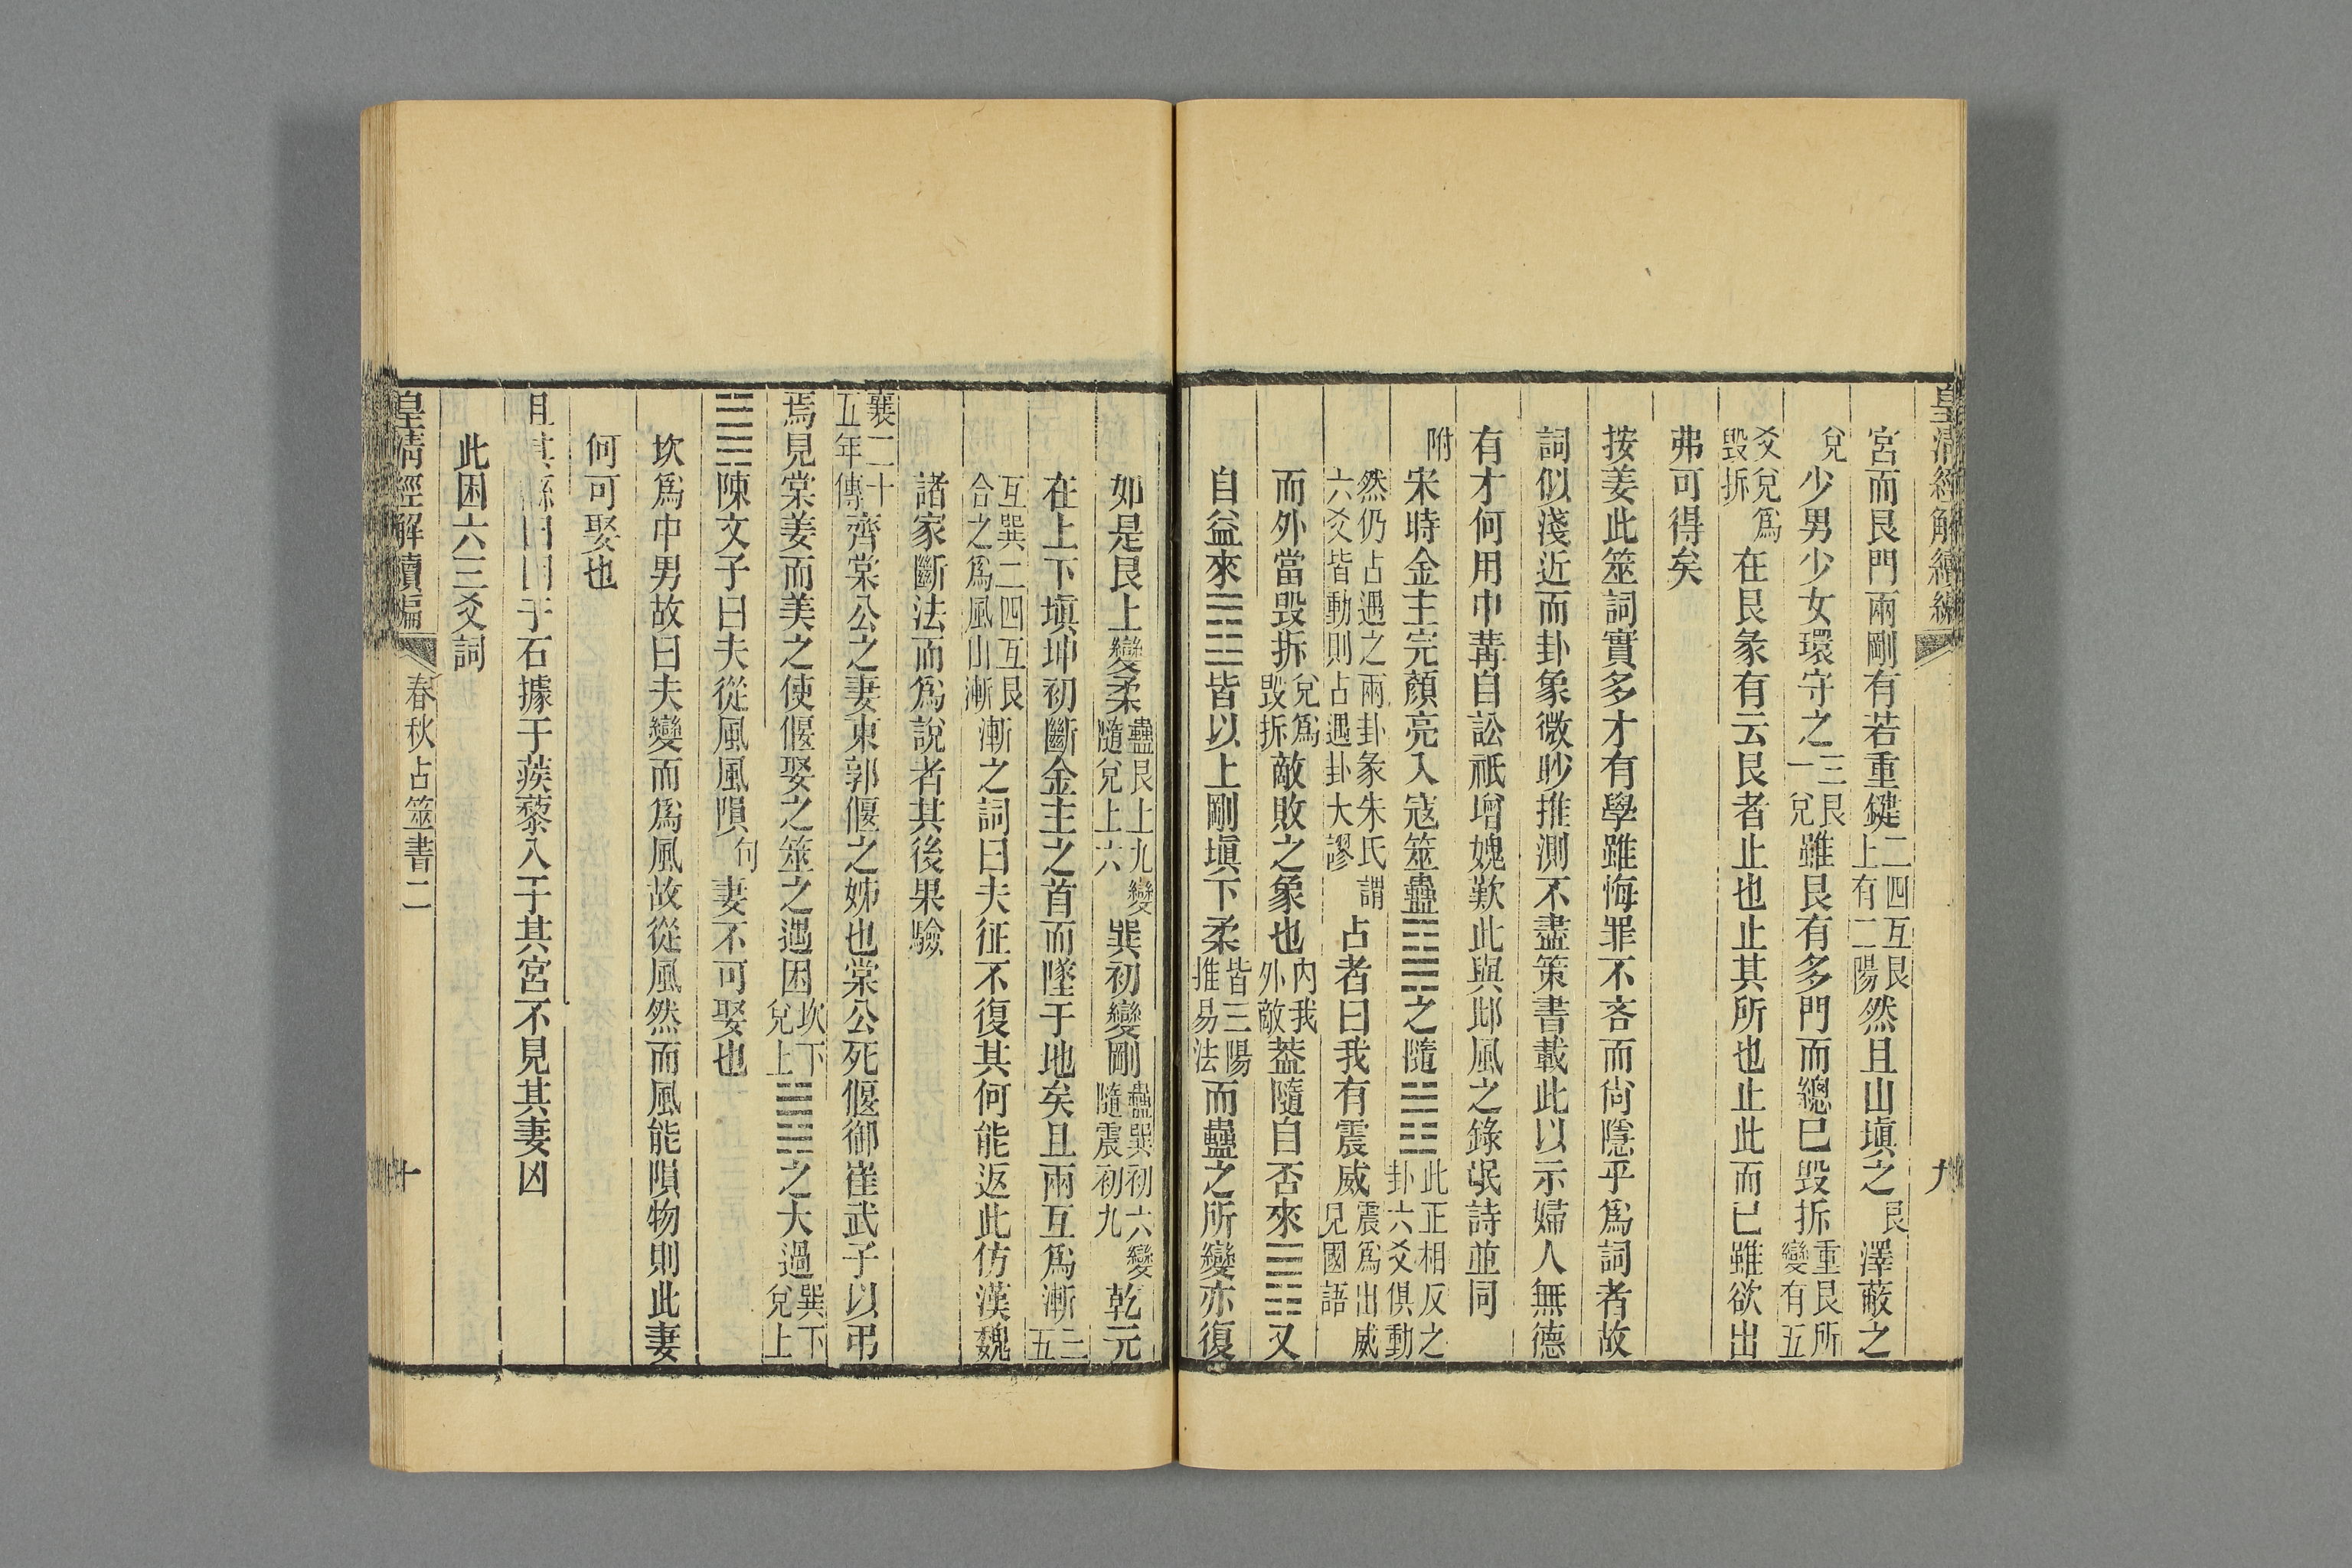 皇清經解續編 九
宮而艮門兩剛有若重鍵二四互艮上有二陽然且山塡之艮澤蔽之
兌少男少女環守之三艮一兌雖艮有多門而總已毀拆重艮所變有五
爻兌爲毀拆在艮彖有云艮者止也止其所也止此而已雖欲出
弗可得矣
按姜此筮詞實多才有學雖悔罪不吝而尙隱乎爲詞者故
詞似淺近而卦象微眇推測不盡策書載此以示婦人無德
有才何用中冓自訟祇增媿歎此與邶風之錄氓詩並同
附宋時金主完顏亮入寇筮蠱䷑之隨䷐此正相反之卦六爻俱動
然仍占遇之兩卦彖朱氏謂六爻皆動則占遇卦大謬占者曰我有震威震爲出威見國語
而外當毀拆兌爲毀拆敵敗之象也內我外敵葢隨自否來䷋又
自益來䷩皆以上剛塡下柔皆三陽推易法而蠱之所變亦復
如是艮上變柔蠱艮上九變隨兌上六巽初變剛蠱巽初六變隨震初九乾元
在上下塡坤初斷金主之首而墜于地矣且兩互爲漸三五
互巽二四互艮合之爲風山漸漸之詞曰夫征不復其何能返此仿漢魏
諸家斷法而爲說者其後果驗
襄二十五年傳齊棠公之妻東郭偃之姊也棠公死偃御崔武子以弔
焉見棠姜而美之使偃娶之筮之遇困坎下兌上䷮之大過巽下兌上
䷛陳文子曰夫從風風隕句妻不可娶也
坎爲中男故曰夫變而爲風故從風然而風能隕物則此妻
何可娶也
且其繇曰困于石據于蒺藜入于其宮不見其妻凶
此困六三爻詞
皇清經解續編 春秋占筮書二 十